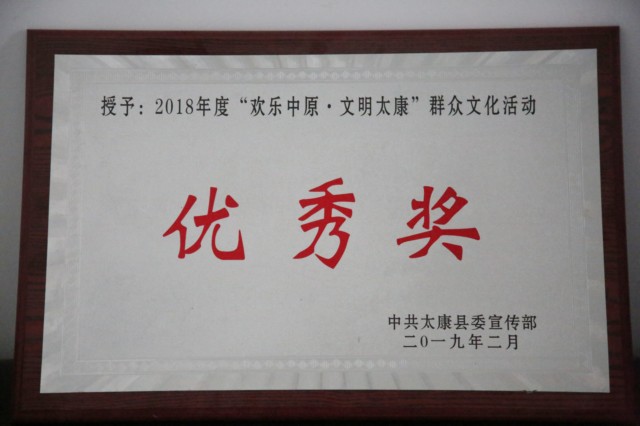 授予：2018年度“欢乐中原·文明太康”群众文化活动
优秀奖
中共太康县委宣传部
二〇一九年二月